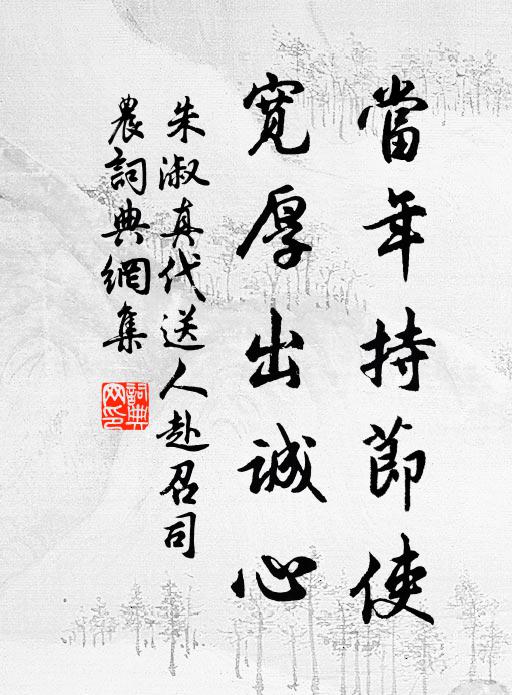 當年持節使
寬厚出誠心
朱淑真代送人赴召司
農詞典網集
詞典
网印